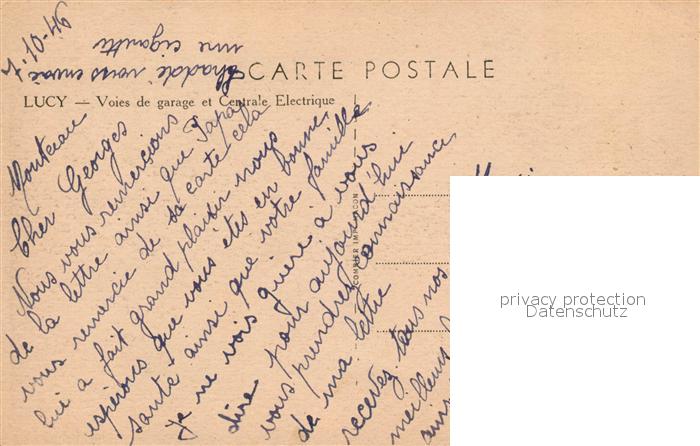 7-10-46
vous envoie
une cigarette
CARTE POSTALE
LUCY — Voies de garage et Centrale Electrique
Montceau
Cher Georges
Nous vous remercions
de la lettre ainsi que Papa
vous remercie de sa carte cela
lui a fait grand plaisir nous
espérons que vous êtes en bonne
santé ainsi que votre famille
je ne vois guère à vous
dire pour aujourd'hui
vous prendrez connaissance
de ma lettre
recevez tous nos
meilleurs
COMBIER IMP. MACON
privacy protection
Datenschutz